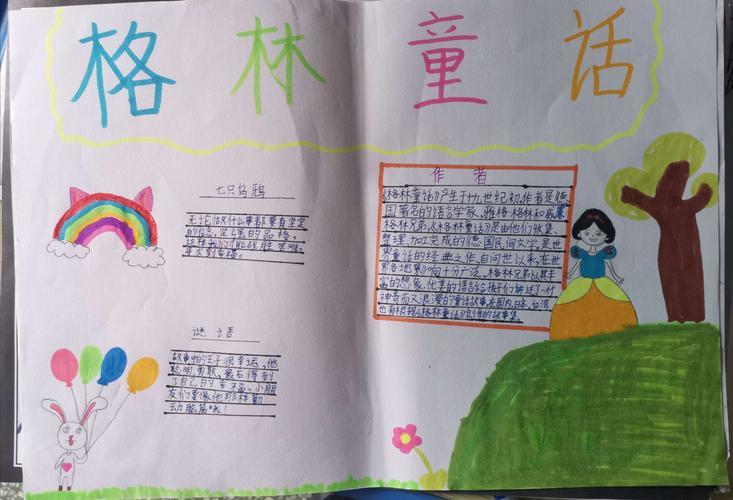 格林童话
七只乌鸦
无论做什么事都要有坚定
的信念,坚强的品格,
这样我们才能战胜困难,
寻找到幸福。
谜语
故事中的王子很幸运,他
聪明勇敢,最后得到
了自己的幸福。小朋
友们要像他那样勤
动脑筋哦!
作者
《格林童话》产生于十九世纪初,作者是德
国著名的语言学家,雅格·格林和威廉·
格林兄弟。《格林童话》是由他们收集、
整理、加工完成的德国民间文学,是世
界童话的经典之作,自问世以来,在世
界各地影响十分广泛。格林兄弟以其丰
富的想象、优美的语言给孩子们讲述了一个个
神奇而又浪漫的童话故事。在国内,日本,台湾
也有根据《格林童话》创作的故事集。